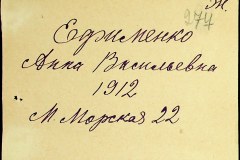 Ж.
274
Ефименко
Анна Васильевна
1912
М. Морская 22